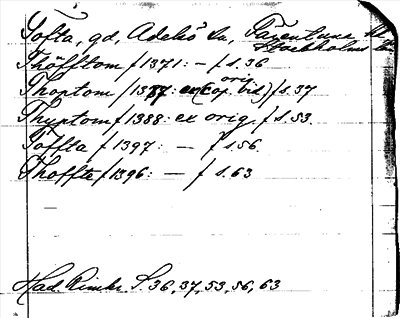 Tofta, gd, Adelsö sn, Färentuna
Stockholms
Thöfftom /1371: — / s. 36
orig.
Thoptom /1387: ex (cop. vid) / s. 37
Thyptom /1388: ex orig. / s. 53.
Toffta / 1397: — / s. 56.
Thoffte /1396: — / s. 63
Had. Rimbr S. 36, 37, 53, 56, 63